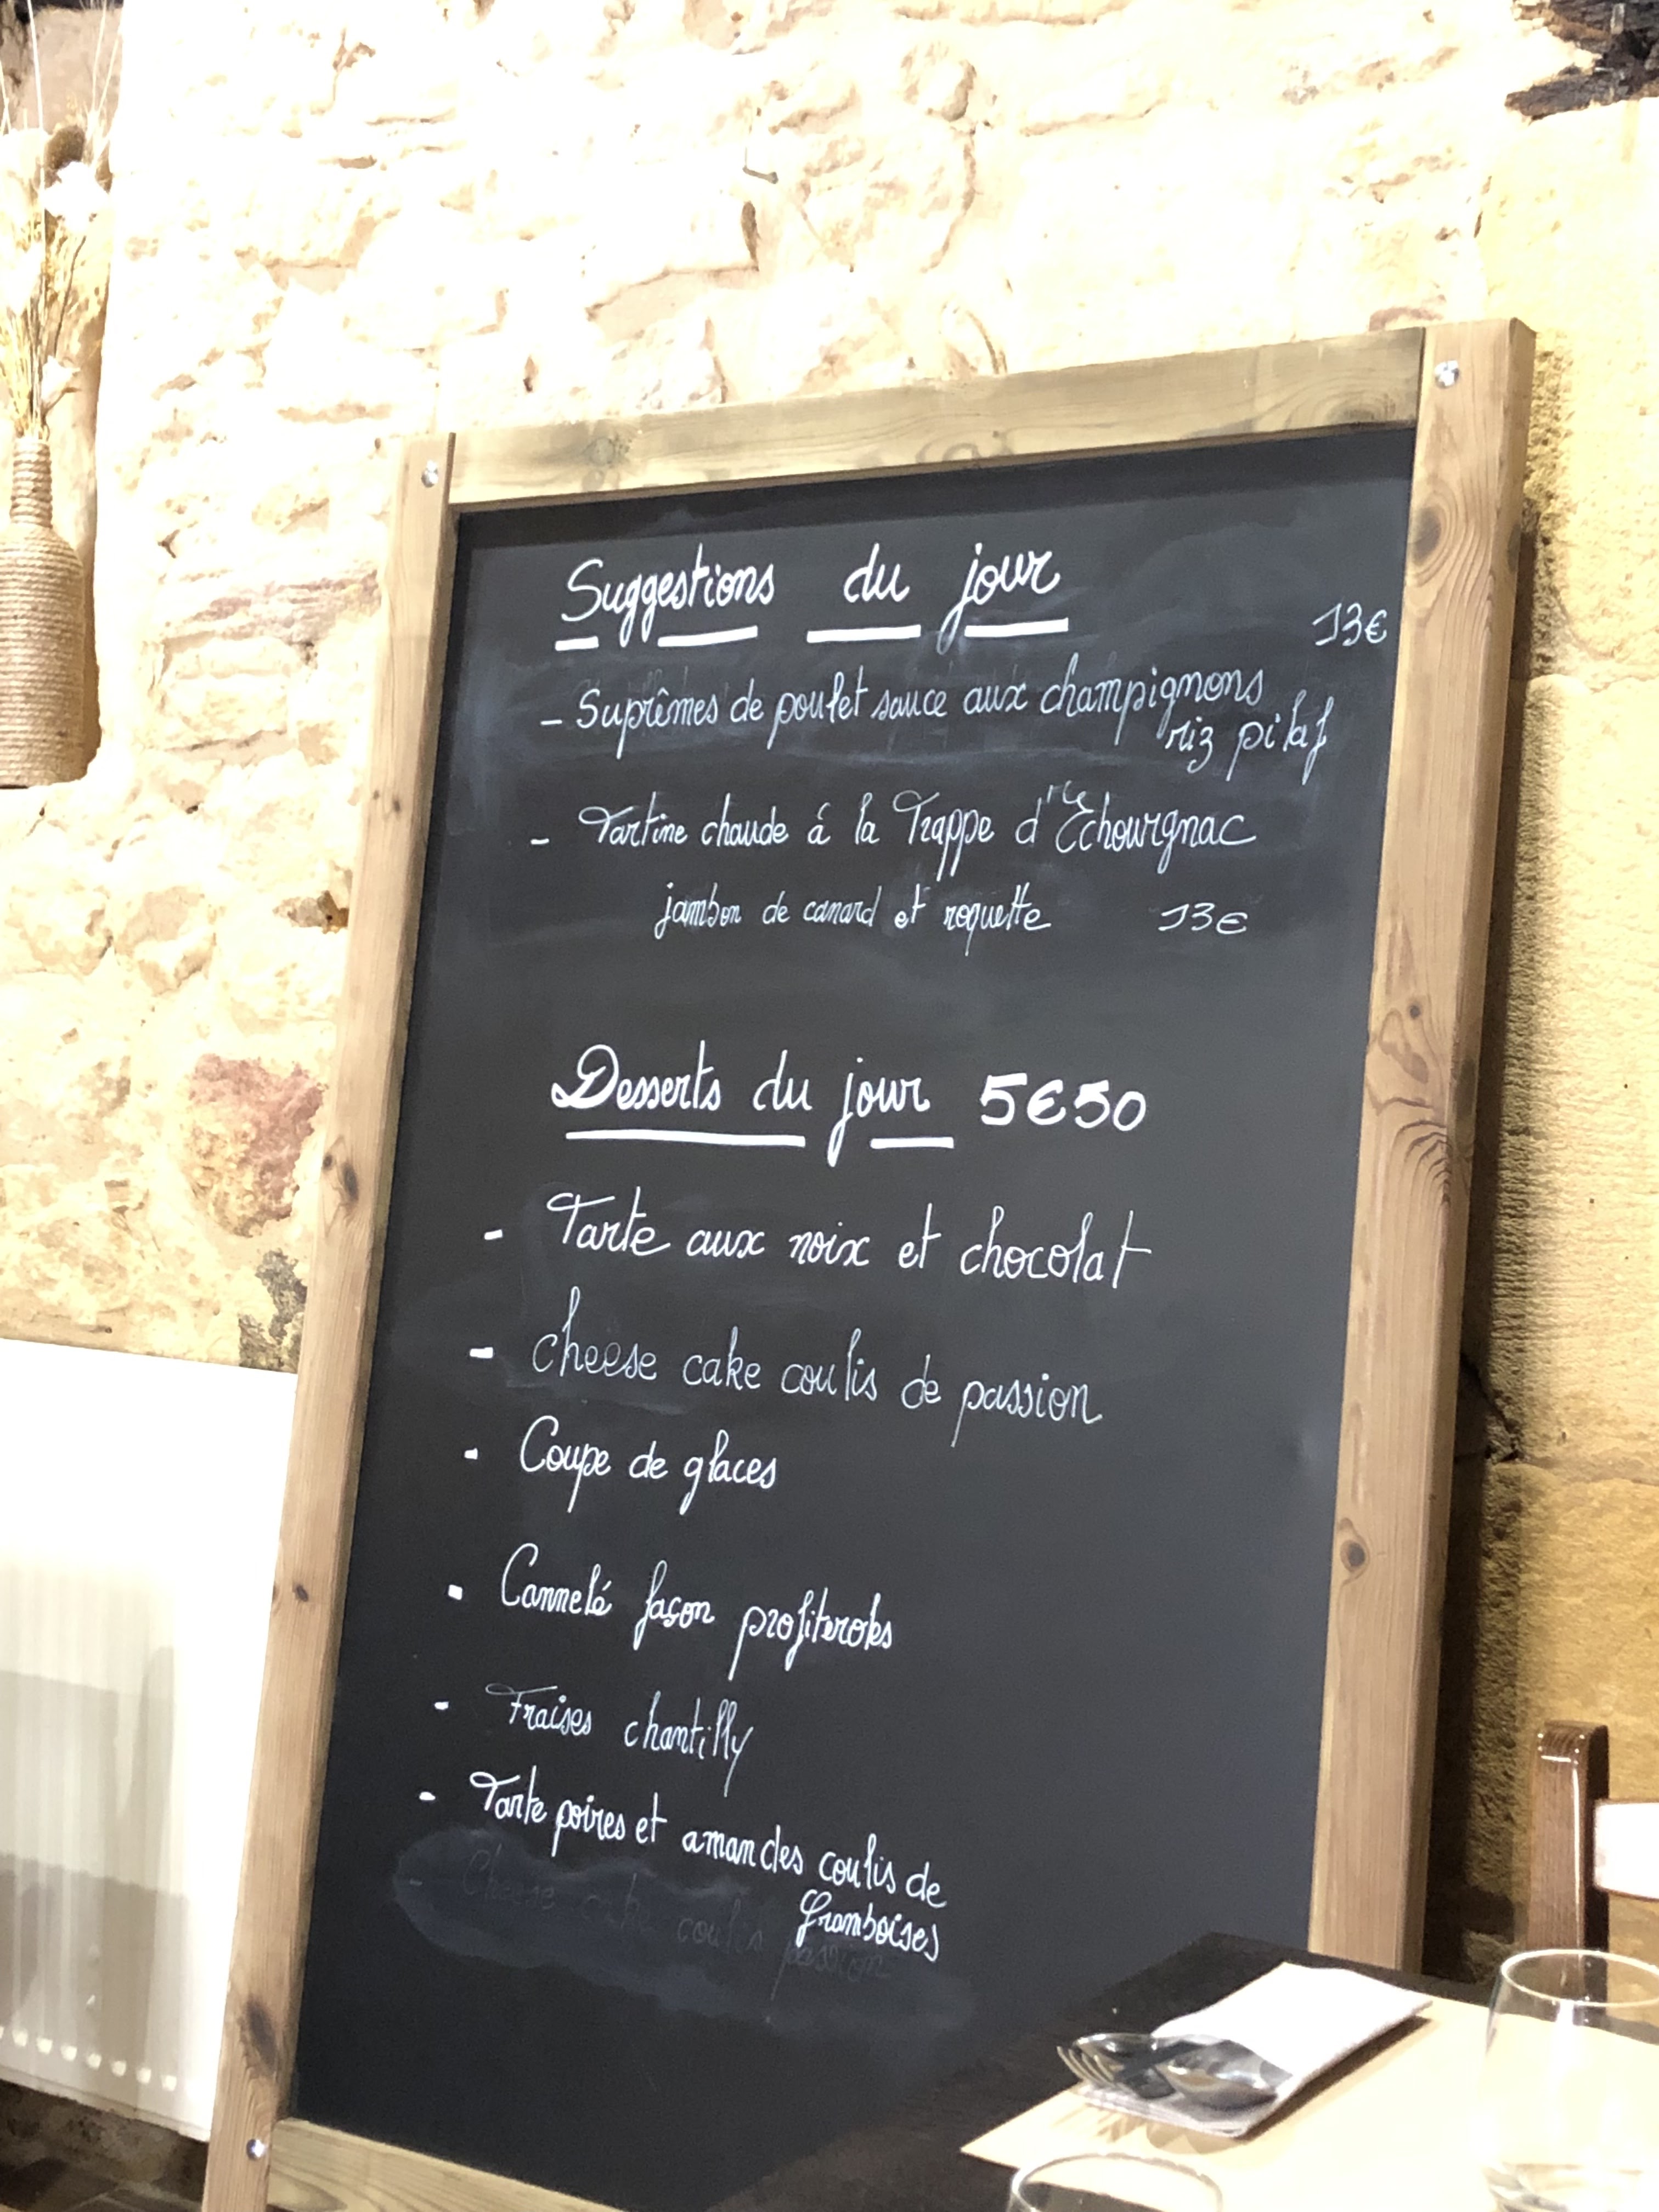 Suggestions du jour
13€
- Suprêmes de poulet sauce aux champignons
riz pilaf
- Tartine chaude á la Trappe d'Echourgnac
jambon de canard et roquette 13€
Desserts du jour 5€50
- Tarte aux noix et chocolat
- cheese cake coulis de passion
- Coupe de glaces
- Cannelé façon profiteroles
- Fraises chantilly
- Tarte poires et amandes coulis de
framboises
- Cheese cake coulis passion